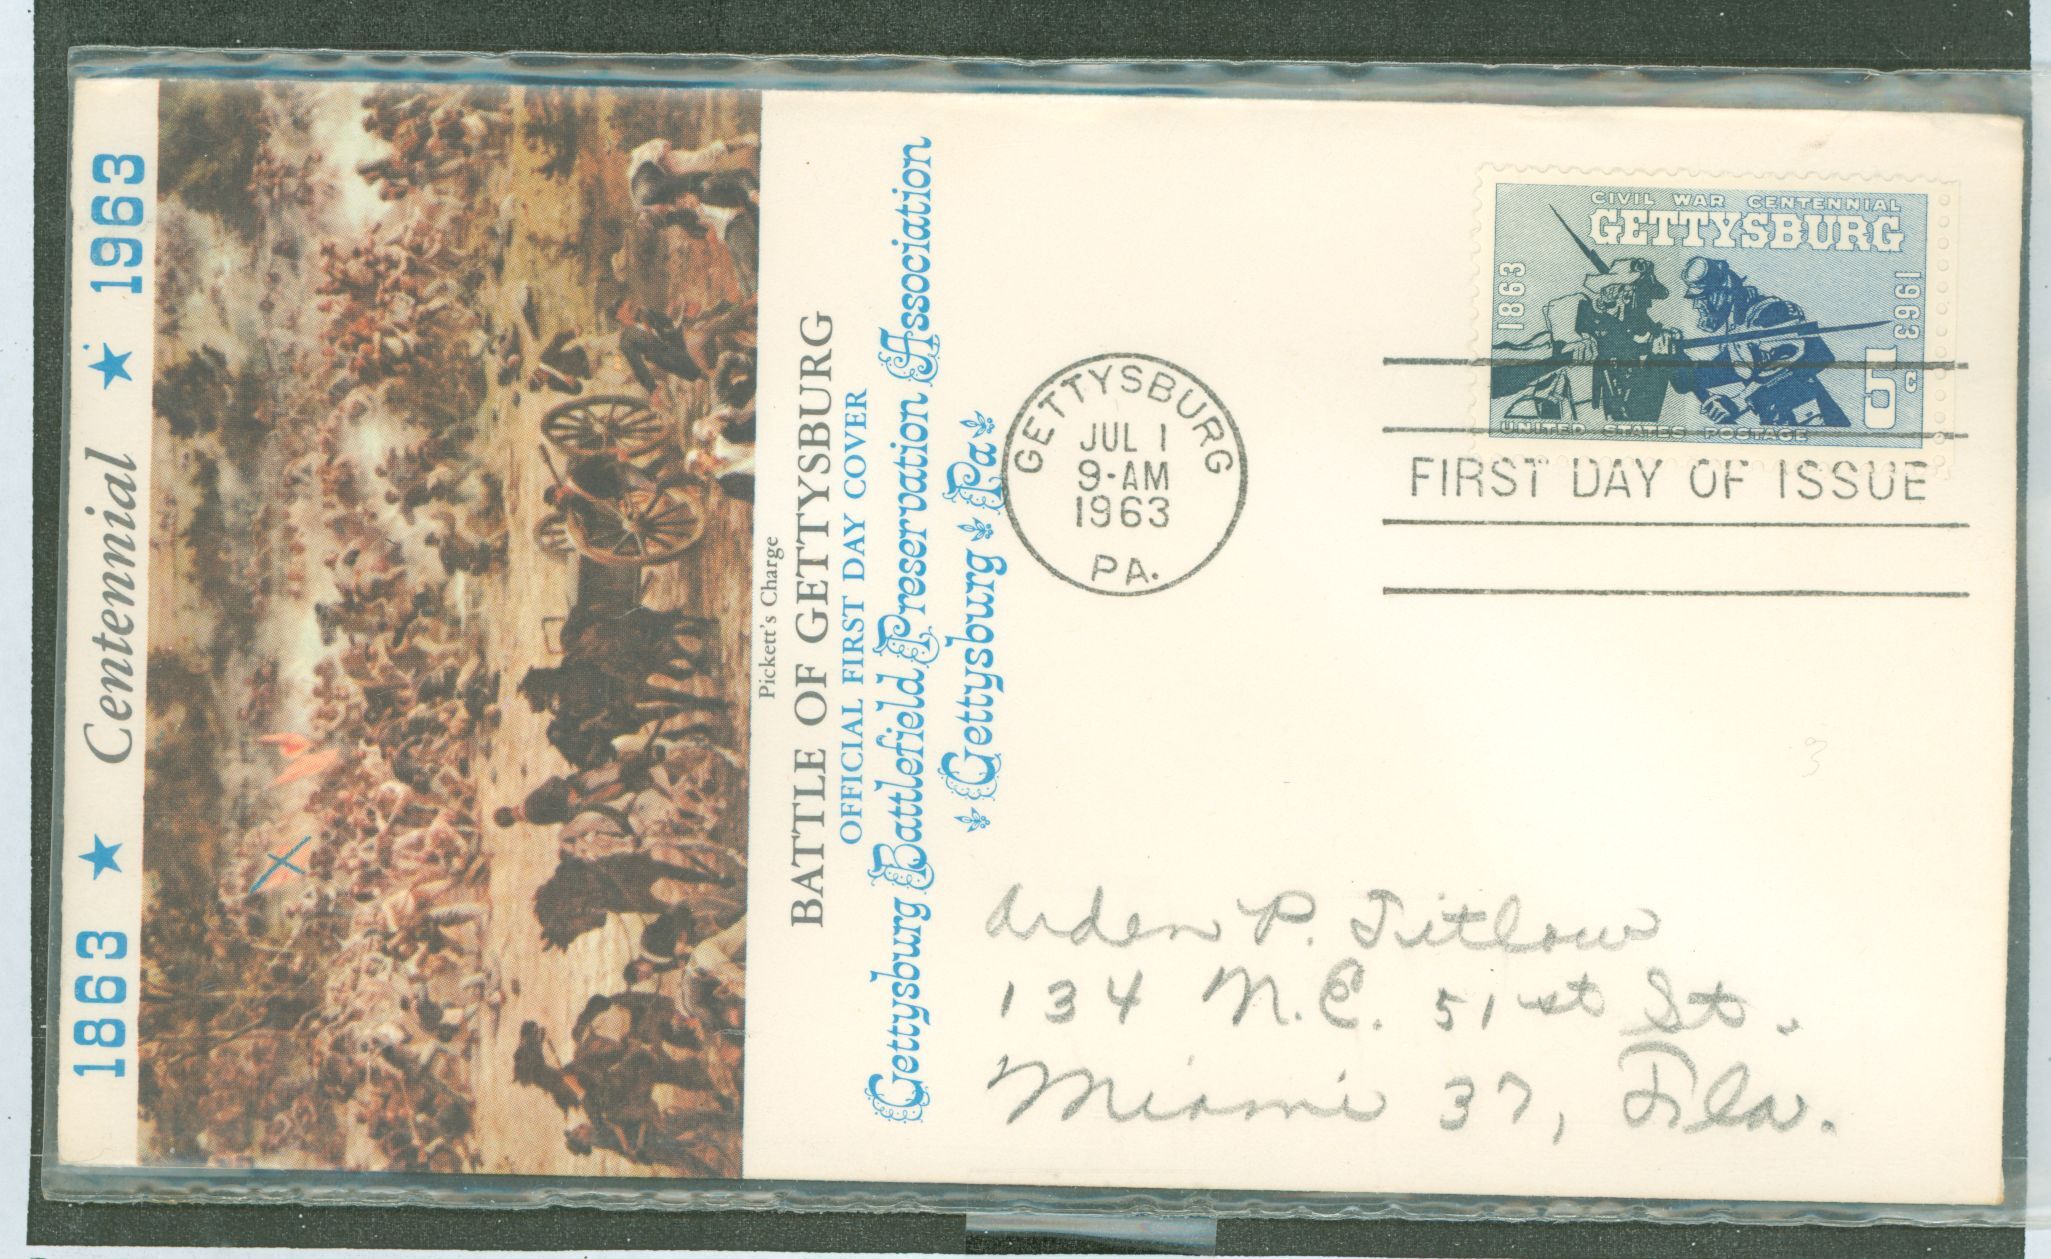 1863 ★ Centennial ★ 1963
Pickett's Charge
BATTLE OF GETTYSBURG
OFFICIAL FIRST DAY COVER
Gettysburg Battlefield Preservation Association
Gettysburg Pa
GETTYSBURG
JUL 1
9-AM
1963
PA.
CIVIL WAR CENTENNIAL
GETTYSBURG
1863
1963
5c
UNITED STATES POSTAGE
FIRST DAY OF ISSUE
3
Arden P. Titlow
134 N.E. 51st St.
Miami 37, Fla.